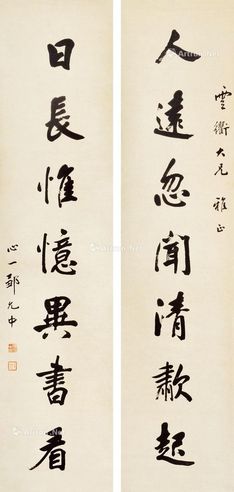 雲衢大兄 雅正
人遠忽聞清歡起
日長惟憶異書看
心一鄒允中